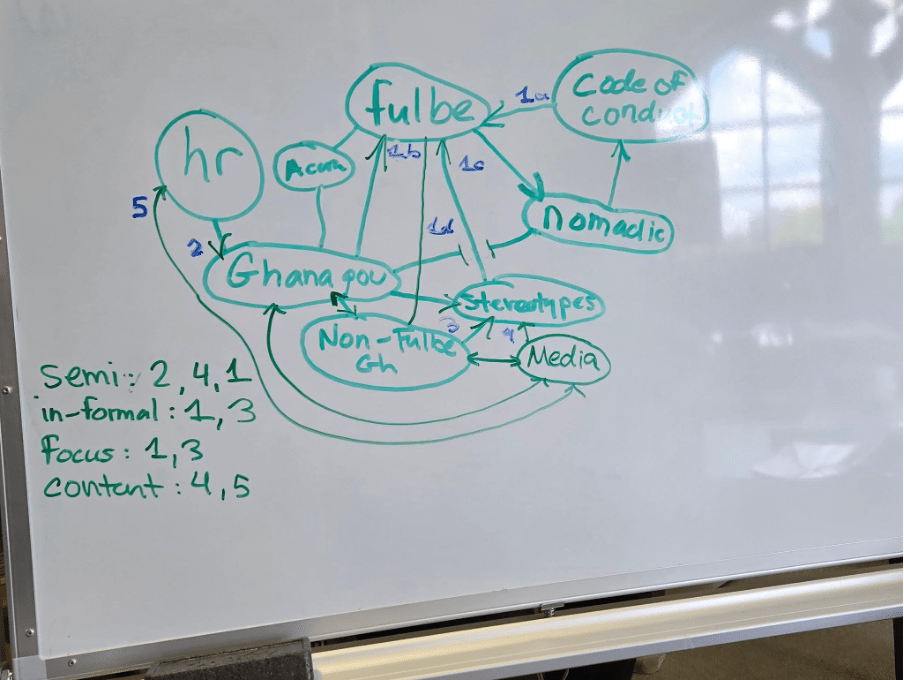 fulbe
Code of
conduct
1a
hr
1b
1c
5
1d
nomadic
2
Ghana gov
Stereotypes
3
Non-Fulbe
Gh
Media
Semi: 2, 4, 1
in-formal: 1, 3
Focus: 1, 3
content: 4, 5